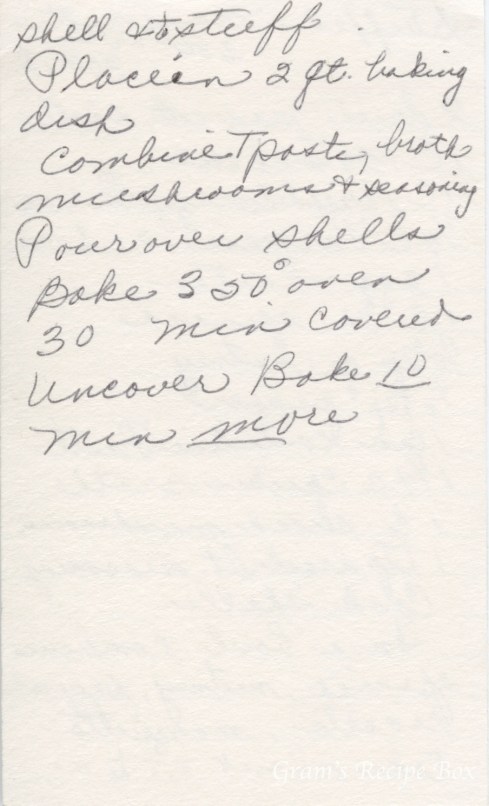 shell & stuff
Place in 2 qt. baking
dish
Combine T paste, broth
mushrooms & seasoning
Pour over shells
Bake 350° oven
30 min covered
Uncover Bake 10
min more
Gram's Recipe Box